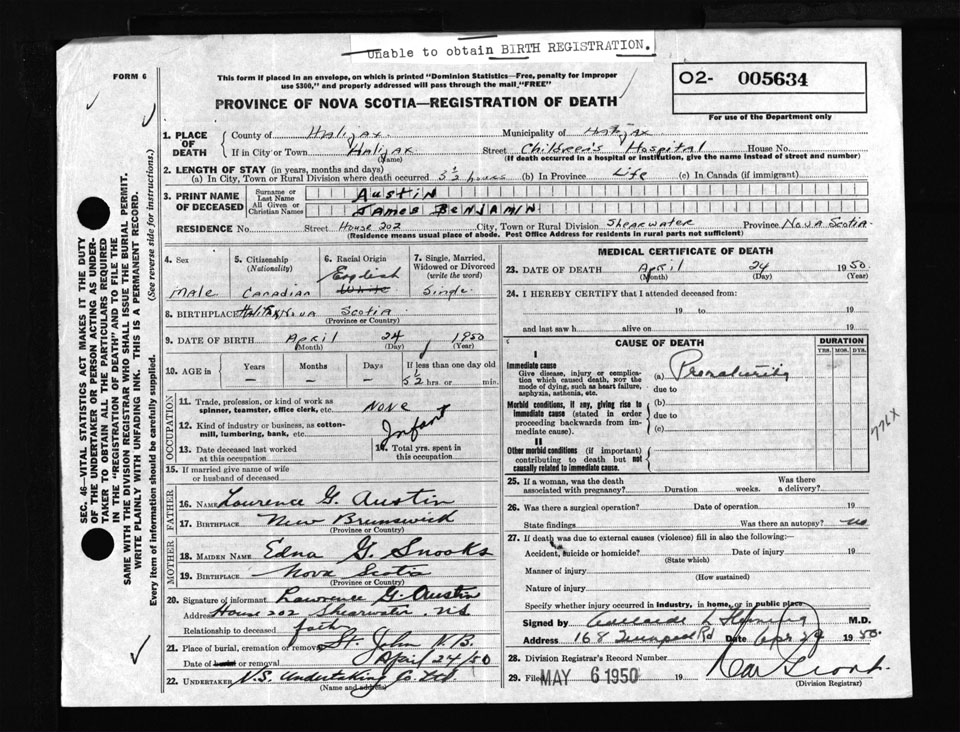 Unable to obtain BIRTH REGISTRATION.
FORM 6
This form if placed in an envelope, on which is printed "Dominion Statistics—Free, penalty for improper
use $300," and properly addressed will pass through the mail, "FREE"
PROVINCE OF NOVA SCOTIA—REGISTRATION OF DEATH
O2- 005634
For use of the Department only
1. PLACE OF DEATH
County of Halifax Municipality of Halifax
If in City or Town Halifax Street Children's Hospital House No.
(Name) (If death occurred in a hospital or institution, give the name instead of street and number)
2. LENGTH OF STAY (in years, months and days)
(a) In City, Town or Rural Division where death occurred 5½ hours (b) In Province Life (c) In Canada (if immigrant)
3. PRINT NAME OF DECEASED
Surname or Last Name AUSTIN
All Given or Christian Names JAMES BENJAMIN
RESIDENCE No. Street House 202 City, Town or Rural Division Shearwater Province Nova Scotia
(Residence means usual place of abode. Post Office Address for residents in rural parts not sufficient)
4. Sex
Male
5. Citizenship (Nationality)
Canadian
6. Racial Origin
English
White
7. Single, Married, Widowed or Divorced (write the word)
Single
8. BIRTHPLACE Halifax Nova Scotia
(Province or Country)
9. DATE OF BIRTH April 24 1950
(Month) (Day) (Year)
10. AGE in Years Months Days If less than one day old
5½ hrs. or min.
OCCUPATION
11. Trade, profession, or kind of work as
spinner, teamster, office clerk, etc. NONE
12. Kind of industry or business, as cotton-
mill, lumbering, bank, etc. Infant
13. Date deceased last worked
at this occupation
14. Total yrs. spent in
this occupation
15. If married give name of wife
or husband of deceased
FATHER
16. NAME Lawrence G. Austin
17. BIRTHPLACE New Brunswick
(Province or Country)
MOTHER
18. MAIDEN NAME Edna G. Snooks
19. BIRTHPLACE Nova Scotia
(Province or Country)
20. Signature of informant Lawrence G. Austin
Address House 202 Shearwater N.S.
Relationship to deceased father
21. Place of burial, cremation or removal St. John N.B.
Date of burial or removal April 24/50
22. UNDERTAKER N.S. Undertaking Co. Ltd
(Name and address)
MEDICAL CERTIFICATE OF DEATH
23. DATE OF DEATH April 24 1950
(Month) (Day) (Year)
24. I HEREBY CERTIFY that I attended deceased from:
19 to 19
and last saw h alive on 19
CAUSE OF DEATH
DURATION
YRS. MOS. DYS.
I
Immediate cause
Give disease, injury or complica-
tion which caused death, NOT the
mode of dying, such as heart failure,
asphyxia, asthenia, etc.
(a) Prematurity
due to
Morbid conditions, if any, giving rise to
immediate cause (stated in order
proceeding backwards from im-
mediate cause).
(b)
due to
(c)
II
Other morbid conditions (if important)
contributing to death but not
causally related to immediate cause.
776X
25. If a woman, was the death
associated with pregnancy? Duration weeks. Was there
a delivery?
26. Was there a surgical operation? Date of operation 19
State findings Was there an autopsy? no
27. If death was due to external causes (violence) fill in also the following:—
Accident, suicide or homicide? Date of injury 19
(State which)
Manner of injury
(How sustained)
Nature of injury
Specify whether injury occurred in industry, in home, or in public place
Signed by Adelaide L Fleming M.D.
Address 168 Date Apr 29 1950.
28. Division Registrar's Record Number
29. Filed MAY 6 1950 19
(Division Registrar)
SEC. 46—VITAL STATISTICS ACT MAKES IT THE DUTY
OF THE UNDERTAKER OR PERSON ACTING AS UNDER-
TAKER TO OBTAIN ALL THE PARTICULARS REQUIRED
IN THE "REGISTRATION OF DEATH" AND TO FILE THE
SAME WITH THE DIVISION REGISTRAR WHO SHALL ISSUE THE BURIAL PERMIT.
WRITE PLAINLY WITH UNFADING INK. THIS IS A PERMANENT RECORD.
Every item of information should be carefully supplied. (See reverse side for instructions.)